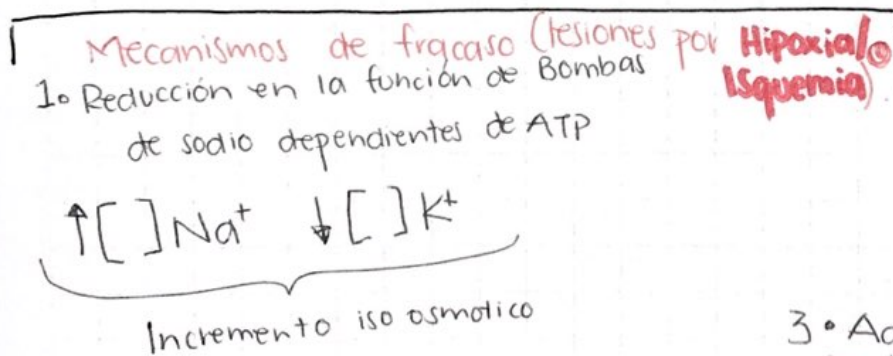 Mecanismos de fracaso (lesiones por Hipoxia/o
Isquemia)
1. Reducción en la función de Bombas
de sodio dependientes de ATP
↑[ ]Na+ ↓[ ]K+
Incremento iso osmotico
3.